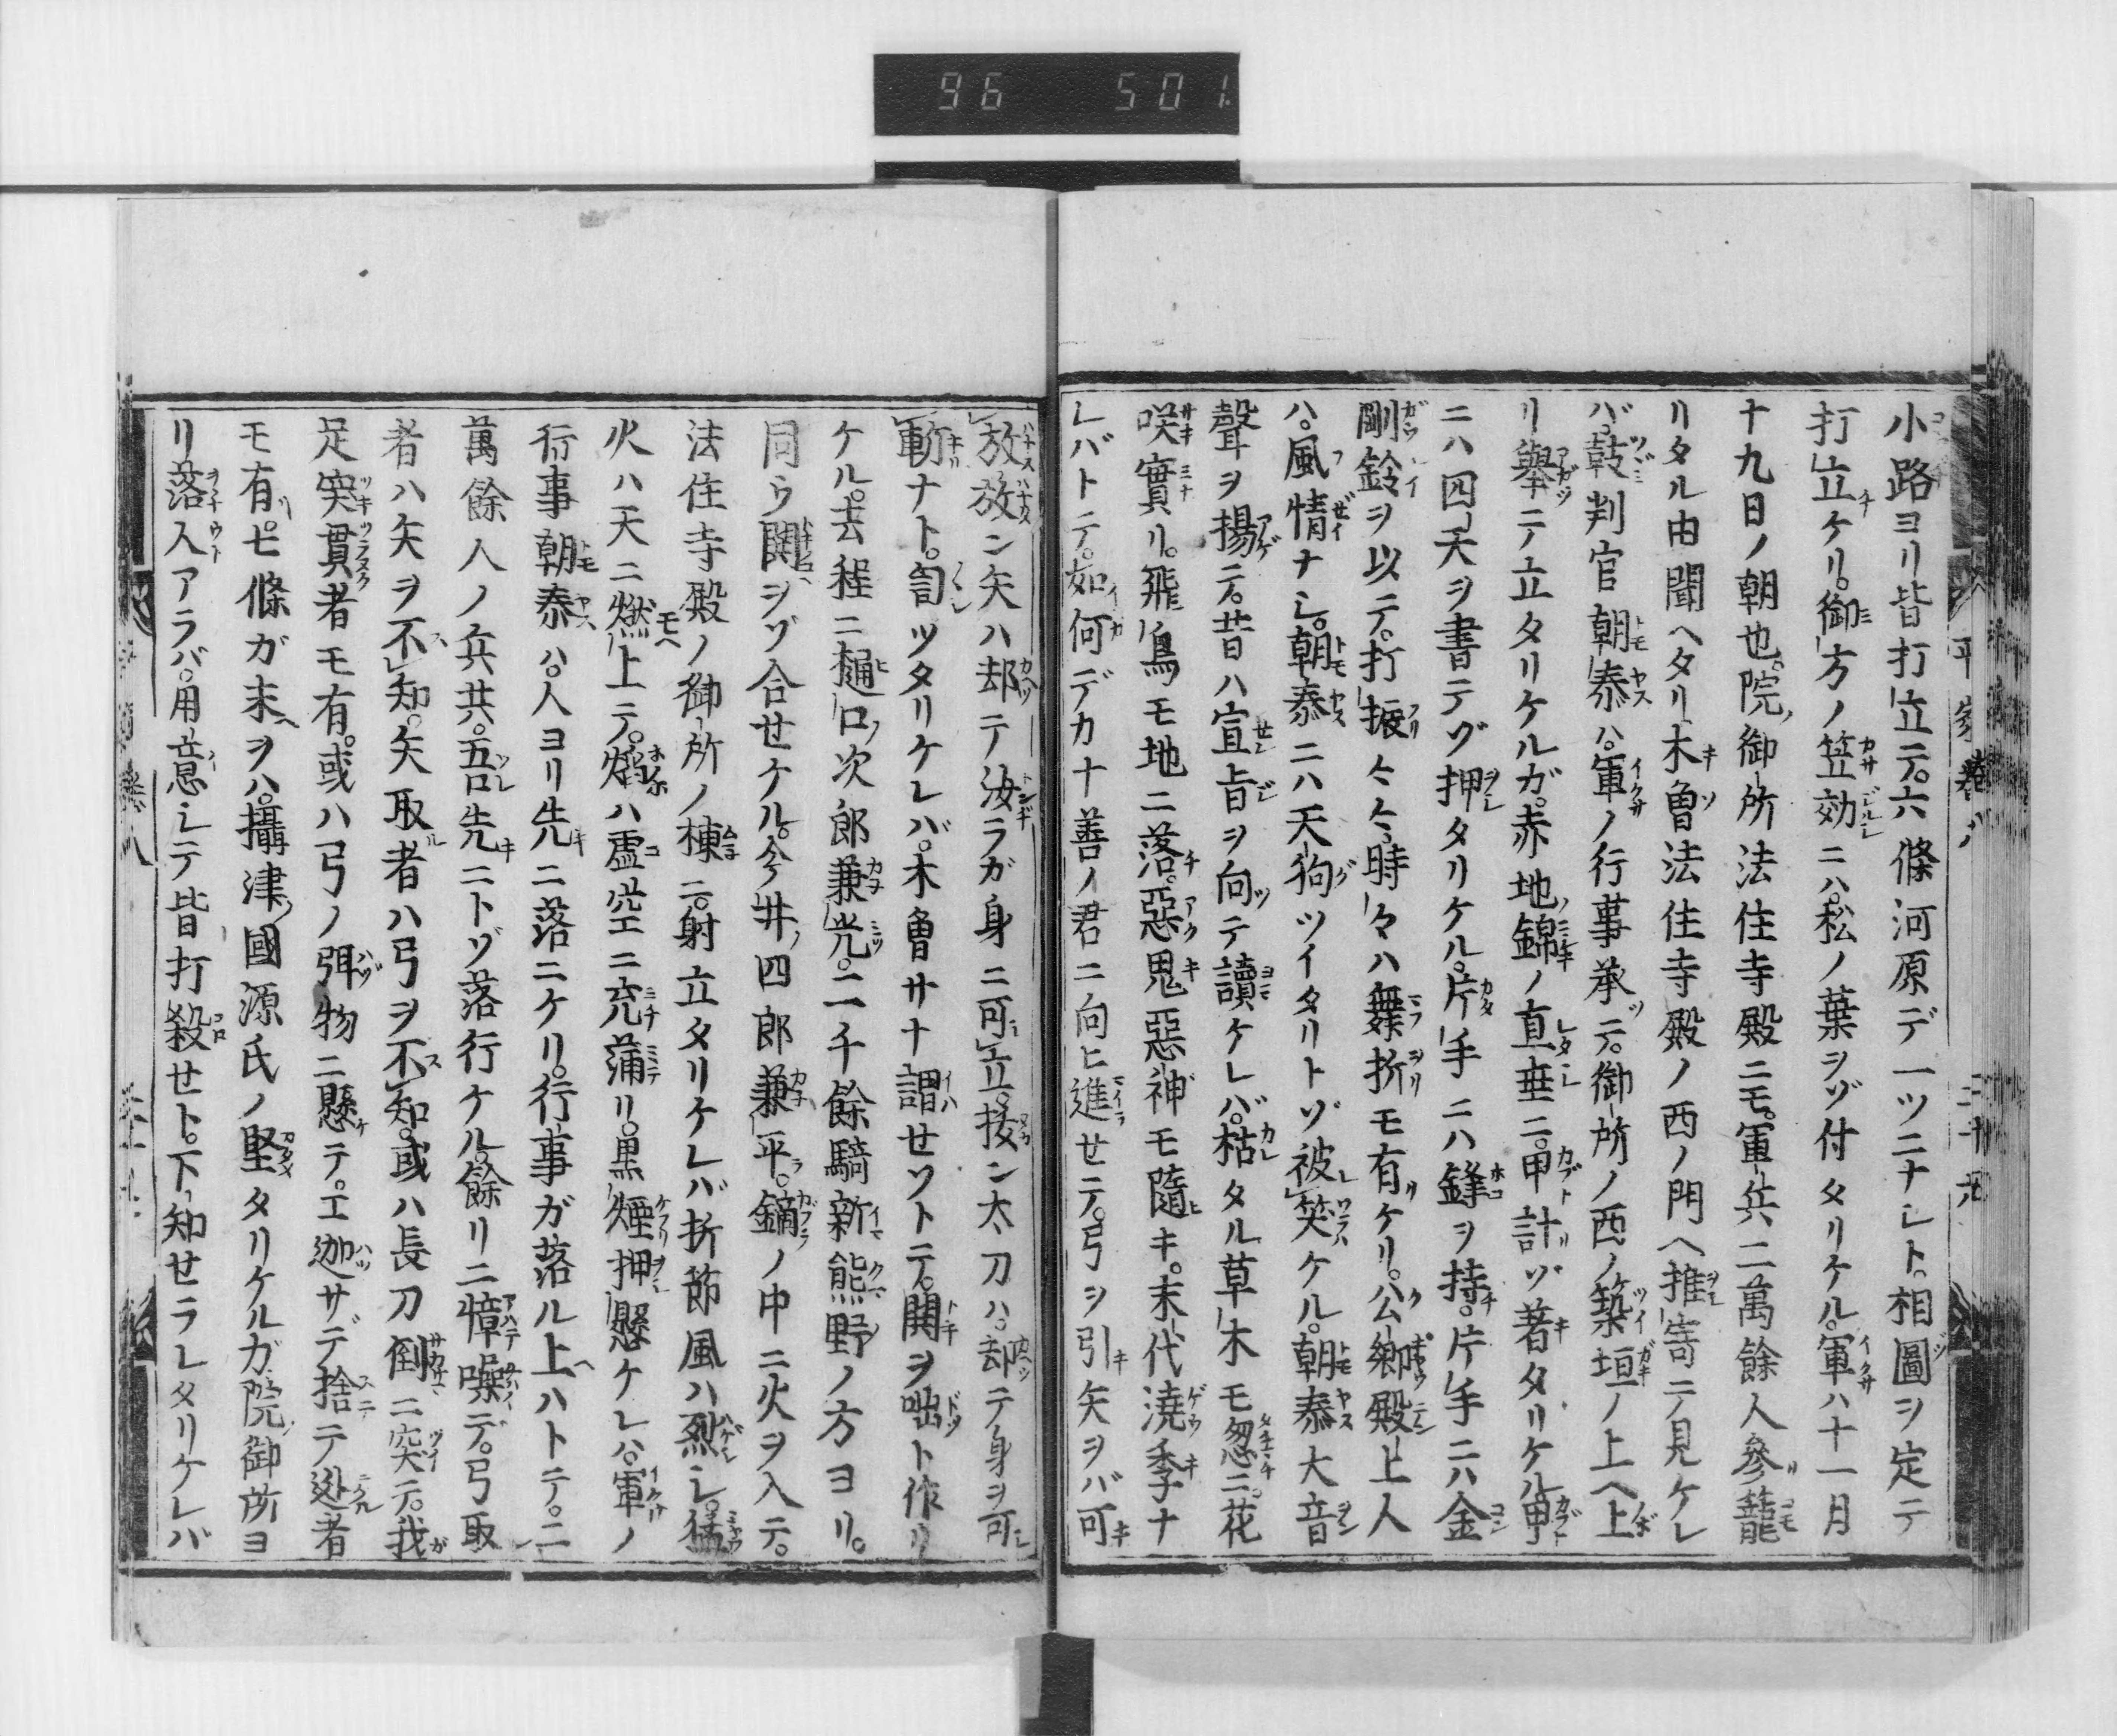 96 501.
平家巻八 三十九
小路ヨリ皆打立テ。六條河原デ一ツニナレト。相圖ヲ定テ
打立ケリ。御方ノ笠効ニハ。松ノ葉ヲヅ付タリケル。軍ハ十一月
十九日ノ朝也。院御所法住寺殿ニモ。軍兵二萬餘人參籠
リタル由聞ヘタリ。木曾法住寺殿ノ西ノ門ヘ推寄テ見ケレ
バ。鼓判官朝泰ハ。軍ノ行事承テ。御所ノ西ノ築垣ノ上ヘ上
リ擧テ立タリケルガ。赤地錦ノ直垂ニ。甲計ヅ著タリケル。甲
ニハ四天ヲ書テヅ押タリケル。片手ニハ鋒ヲ持。片手ニハ金
剛鈴ヲ以テ。打振々々。時々ハ舞折モ有ケリ。公卿殿上人
ハ。風情ナレ。朝泰ニハ天狗ツイタリトヅ被笑ケル。朝泰大音
聲ヲ揚テ。昔ハ宣旨ヲ向テ讀ケレバ。枯タル草木モ忽ニ。花
咲實リ。飛鳥モ地ニ落。惡鬼惡神モ隨キ。末代澆季ナ
レバトテ。如何デカ十善ノ君ニ向ヒ進セテ。弓ヲ引矢ヲバ可
放。放ン矢ハ却テ汝ラガ身ニ可立。拔ン太刀ハ。却テ身ヲ可
斬ナト。訇ツタリケレバ。木曾サナ謂セソトテ。鬨ヲ咄ト作リ
ケル。去程ニ樋口次郎兼光。二千餘騎新熊野ノ方ヨリ。
同ウ鬨ヲヅ合セケル。今井四郎兼平。鏑ノ中ニ火ヲ入テ。
法住寺殿ノ御所ノ棟ニ。射立タリケレバ折節風ハ烈レ。猛
火ハ天ニ燃上テ。熖ハ虚空ニ充滿リ。黒煙押懸ケレハ。軍ノ
行事朝泰ハ。人ヨリ先ニ落ニケリ。行事ガ落ル上ハトテ。二
萬餘人ノ兵共。吾先ニトヅ落行ケル。餘リニ慞噪デ。弓取
者ハ矢ヲ不知。矢取者ハ弓ヲ不知。或ハ長刀倒ニ突テ。我
足突貫者モ有。或ハ弓ノ弭物ニ懸テ。エ迦サデ捨テ迯者
モ有。七條ガ末ヲハ。攝津國源氏ノ堅タリケルガ。院御所ヨ
リ落人アラバ。用意レテ皆打殺セト。下知せラレタリケレバ